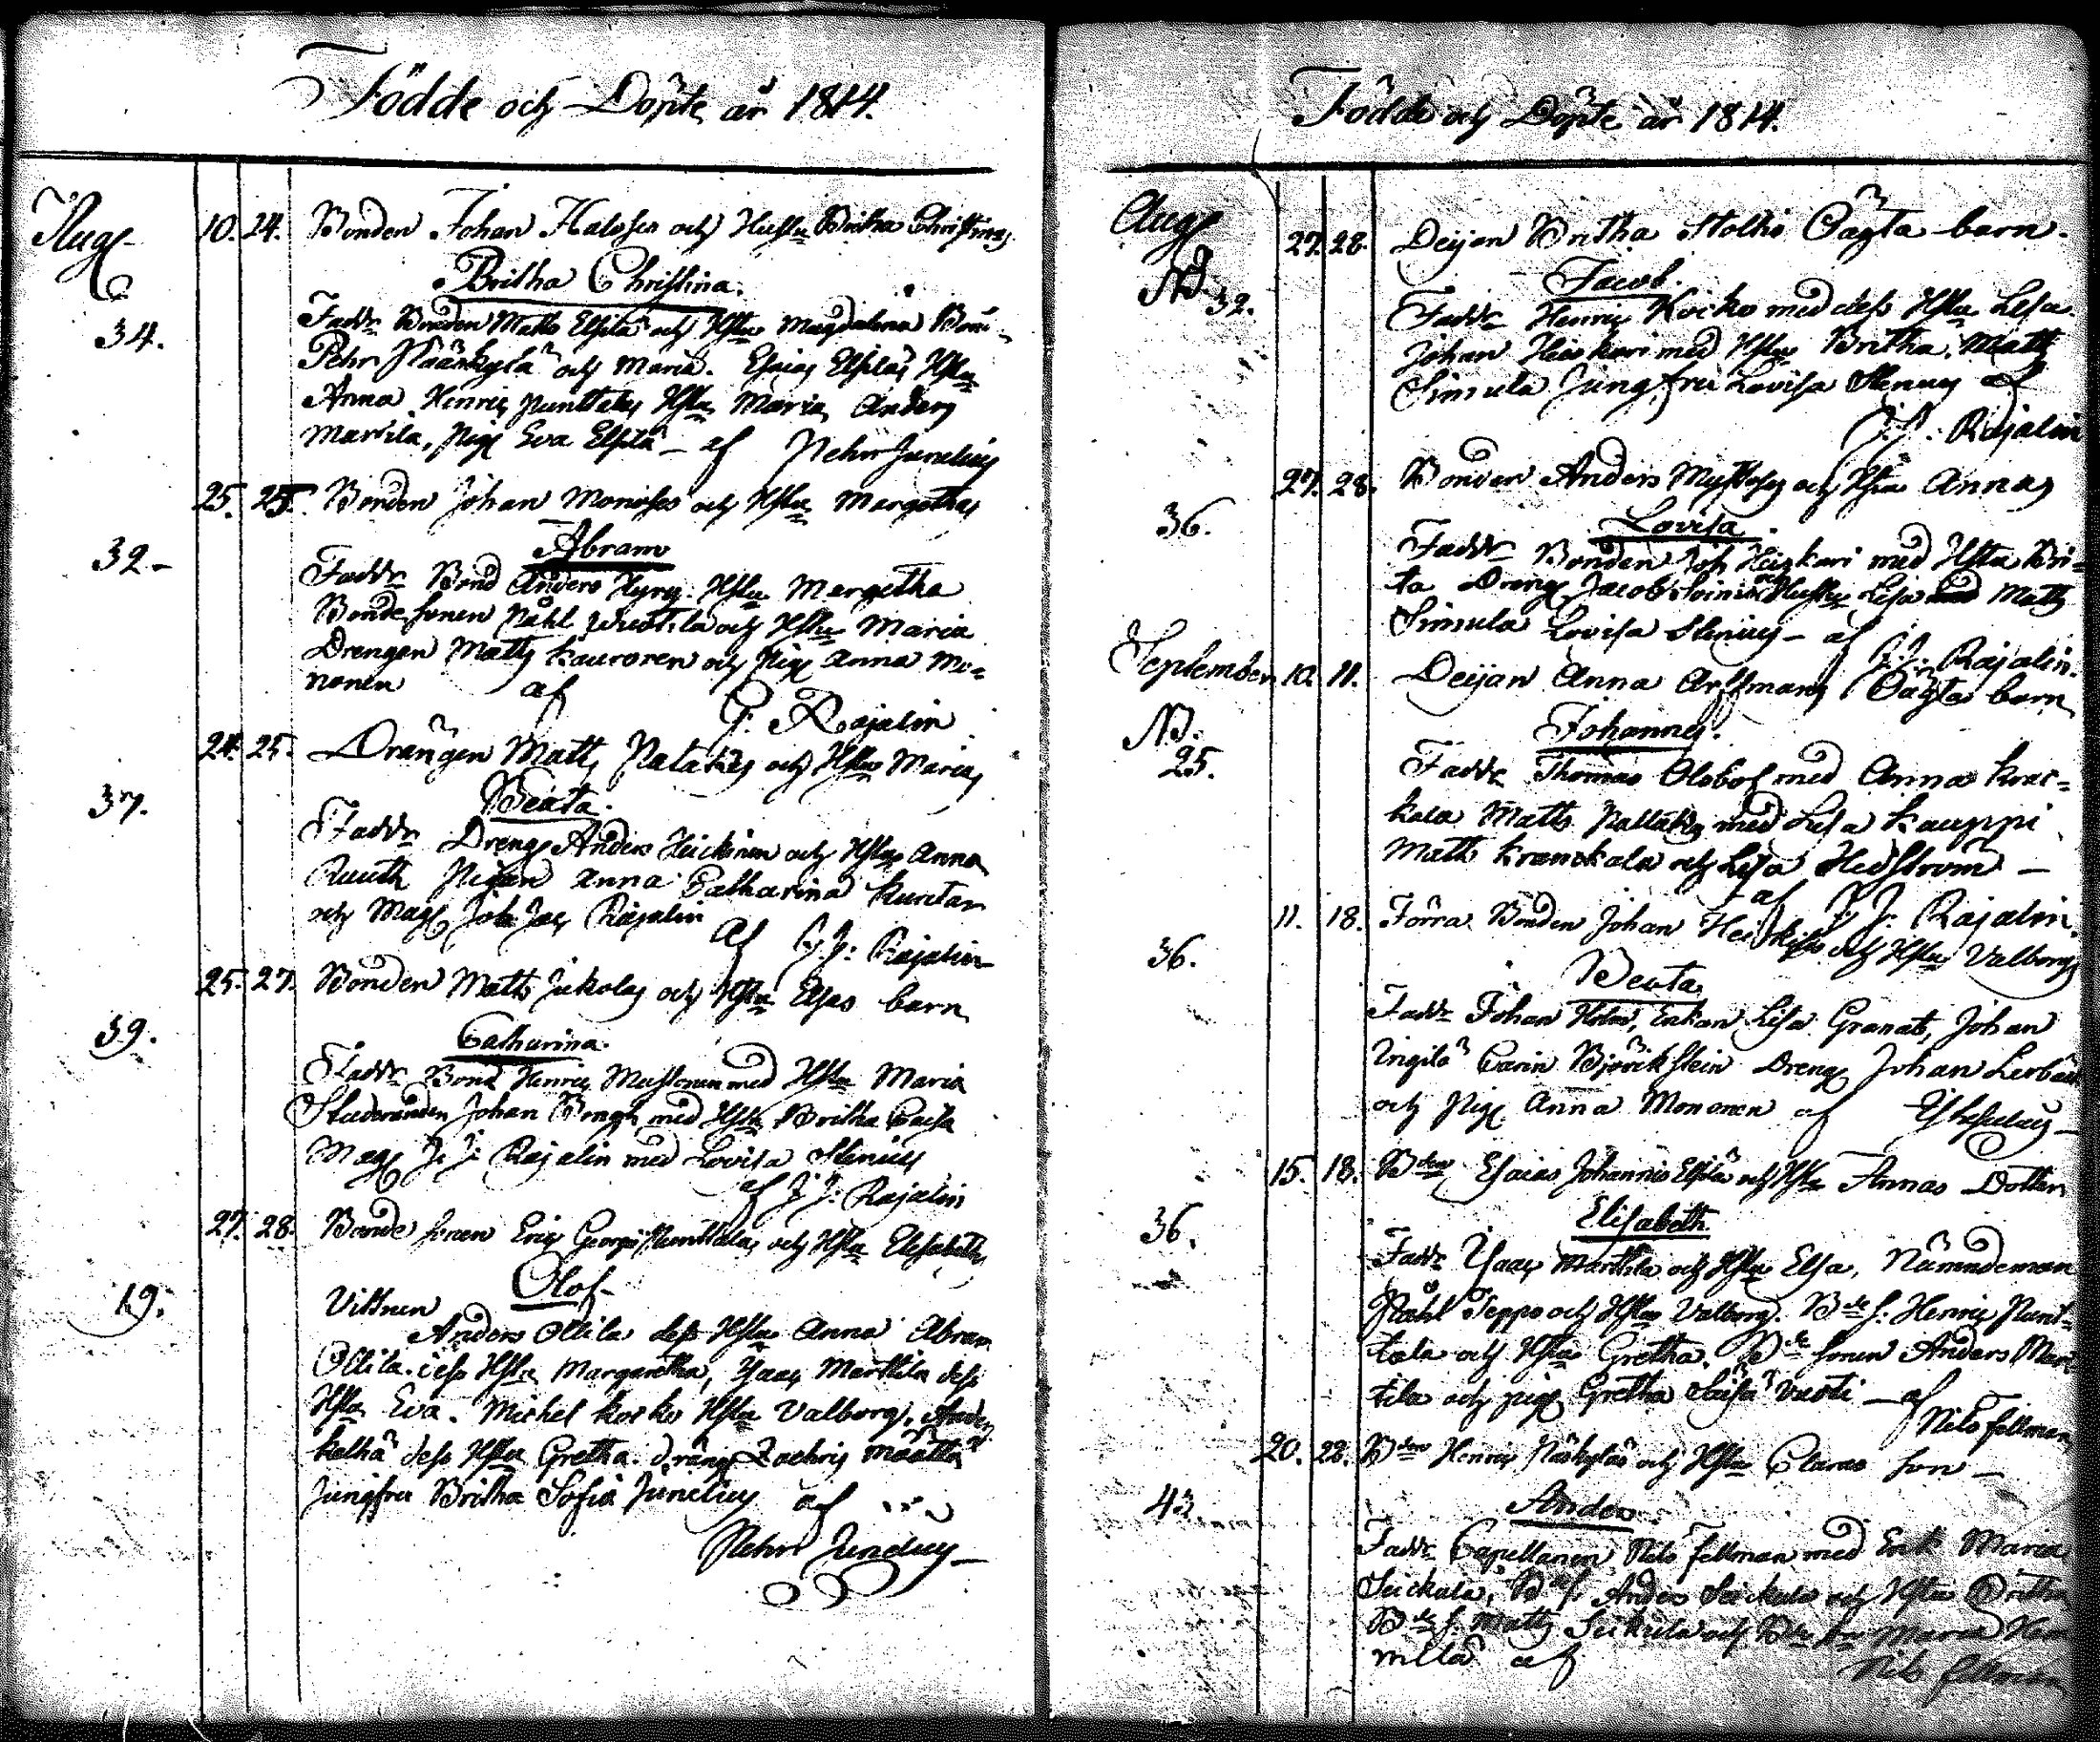 Födde och Döpte år 1814.
Aug
10. 24. Bonden Johan Halosses och Hustru Britha Christinas
Britha Christina.
34. Faddr Bonden Matts Elfilä och Hstru Magdalena Bond
Pehr Nääskylä och Maria. Esaias Elfiläs Hstru
Anna Henric Punttalas Hstru Maria, Anders
Marttila, Pig Eva Elfilä – af Pehr Junelius
25. 25. Bonden Johan Monoises och Hstru Margethas
32 – Abram
Faddr Bond Anders Hyry. Hstru Margetha
Bonde sonen Påhl och Hstru Maria
Drengen Matts Kauroren och Pig Anna Mo=
nonen af J. Rajalin
24. 25. Drängen Matts Patakas och Hstru Marias
37. Beata.
Faddr Dreng Anders Heickinen och Hstru Anna
Ruuth Pigan Anna Catharina Kuntar
och Mag Joh Jac Rajalin af J. J. Rajalin
25. 27. Bonden Matts Jukolas och Hstru Elsas barn
39. Catharina.
Faddr Bond Henric Mustonen med Hstru Maria
Studeranden Johan Bergh med Hstru Britha Caisa
Mag J. J. Rajalin med Lovisa Stenius
af J. J. Rajalin
27. 28. Bonde sonen Eric Georgii Punttalas och Hstru Elisabeths
19. Olof –
Vittnen
Anders Ollila dess Hstru Anna Abram
Ollila dess Hstru Margaretha, Isaac Marttila dess
Hstru Eva. Michel Korko Hstru Valborg, Anders
Kelhä dess Hstru Gretha. dräng Zachris Määttä
Jungfru Britha Sofia Junelius af
Pehr Junelius –
Födde och Döpte år 1814.
Aug
27. 28. Deijan Britha Stolts Oägta barn.
Nb. Jacob.
32. Faddr Henric Korko med dess Hstru Lisa
Johan Heiskari med Hstru Britha. Matts
Simula Jungfru Lovisa Stenius af
J. J. Rajalin
27. 28. Bonden Anders Myllyses och Hstru Annas
36. Lovisa.
Faddr Bonden Joh Heiskari med Hstru Bri=
ta Dreng Jacob och Hustru Lisa med Matts
Simula Lovisa Stenius – af J. J. Rajalin.
September 10. 11. Deijan Anna Arffmans Oägta barn
Nb. Johannes.
25. Faddr Thomas Olobof med Anna Krac=
kala Matts Pattakas med Lisa Kauppi
Matts Kranckala och Lisa Hedström –
af J. J. Rajalin.
11. 18. Förra Bonden Johan och Hstru Valborgs
36. Beata
Faddr Johan Holm, Enkan Lisa Granat, Johan
Ingilä Carin Björckstein Dreng Johan Lerbäck
och Pig Anna Mononen af
15. 18. Bden Esaias Johannis Elfiläs och Hstru Annas Dotter
36. Elisabeth
Faddr Isaac Marttila och Hstru Elsa, Nämndeman
Påhl Seppo och Hstru Valborg. Bde s. Henric Punt=
tala och Hstru Gretha. Bde sonen Anders Mart=
tila och pig Gretha Caisa Vuoti – af
Nils Fellman
20. 22. Bden Henric Nääskyläs och Hstru Claras son –
43. Anders
Faddr Capellanen Nils Fellman med Enk Maria
Seickala, Bde s. Anders Seickala och Hstru Britha
Bde s. Matts Seikula och Maria
af Nils Fellman